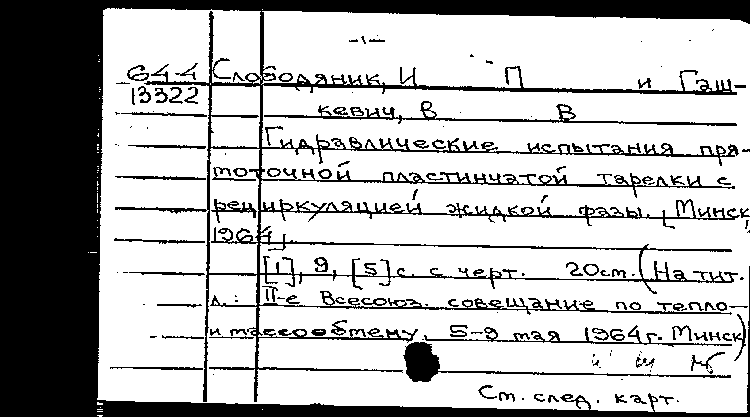 -1-
64-4 Слободяник, И П и Гаш-
13322 кевич, В В
Гидравлические испытания пря-
моточной пластинчатой тарелки с
рециркуляцией жидкой фазы. [Минск,
1964].
[1], 9, [5] с. с черт. 20 см. (На тит.
л.: II-е Всесоюз. совещание по тепло-
и массообмену. 5-9 мая 1964 г. Минск)
См. след. карт.